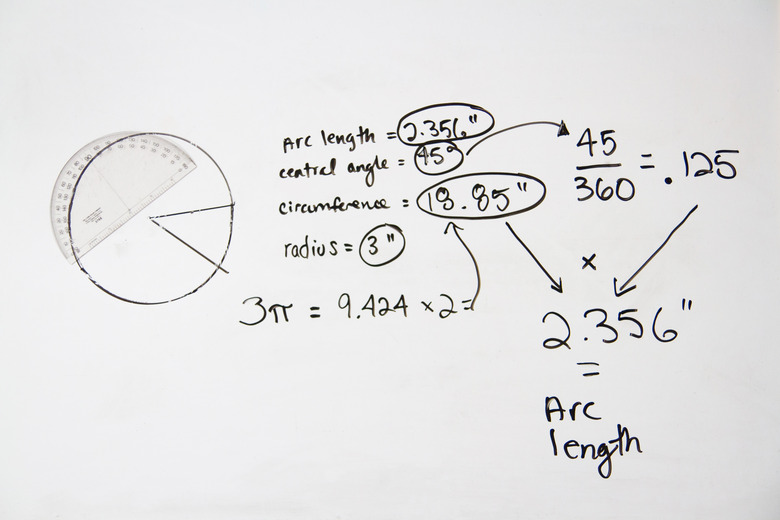 Arc length = 2.356"
central angle = 45°
circumference = 18.85"
radius = 3"
3π = 9.424 × 2 =
45
360
= .125
×
2.356"
=
Arc
length